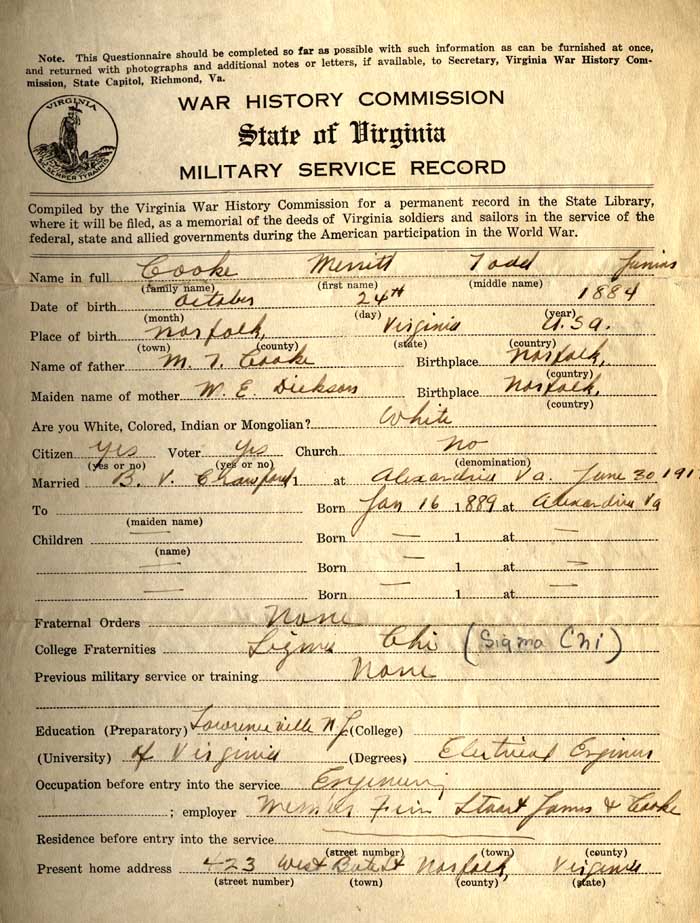 Note. This Questionnaire should be completed so far as possible with such information as can be furnished at once,
and returned with photographs and additional notes or letters, if available, to Secretary, Virginia War History Com-
mission, State Capitol, Richmond, Va.
VIRGINIA
SIC SEMPER TYRANNIS
WAR HISTORY COMMISSION
State of Virginia
MILITARY SERVICE RECORD
Compiled by the Virginia War History Commission for a permanent record in the State Library,
where it will be filed, as a memorial of the deeds of Virginia soldiers and sailors in the service of the
federal, state and allied governments during the American participation in the World War.
Name in full Cooke Merritt Todd Junior
(family name) (first name) (middle name)
Date of birth October 24th 1884
(month) (day) (year)
Place of birth Norfolk, Virginia U.S.a.
(town) (county) (state) (country)
Name of father M. T. Cooke Birthplace Norfolk,
(country)
Maiden name of mother W. E. Dickson Birthplace Norfolk,
(country)
Are you White, Colored, Indian or Mongolian? White
Citizen yes Voter yes Church no
(yes or no) (yes or no) (denomination)
Married B. V. Crawford 1 at Alexandria Va. June 30 191
To Born Jan 16 1889 at Alexandria Va
(maiden name)
Children — Born — 1 — at —
(name)
— Born — 1 at —
— Born — 1 at —
Fraternal Orders None
College Fraternities Sigma Chi (Sigma Chi)
Previous military service or training None
Education (Preparatory) Lawrenceville N.J. (College)
(University) of Virginia (Degrees) Electrical Engineer
Occupation before entry into the service Engineering
; employer Member Firm Stuart James & Cooke
Residence before entry into the service
(street number) (town) (county)
Present home address 423 West Norfolk, Virginia
(street number) (town) (county) (state)